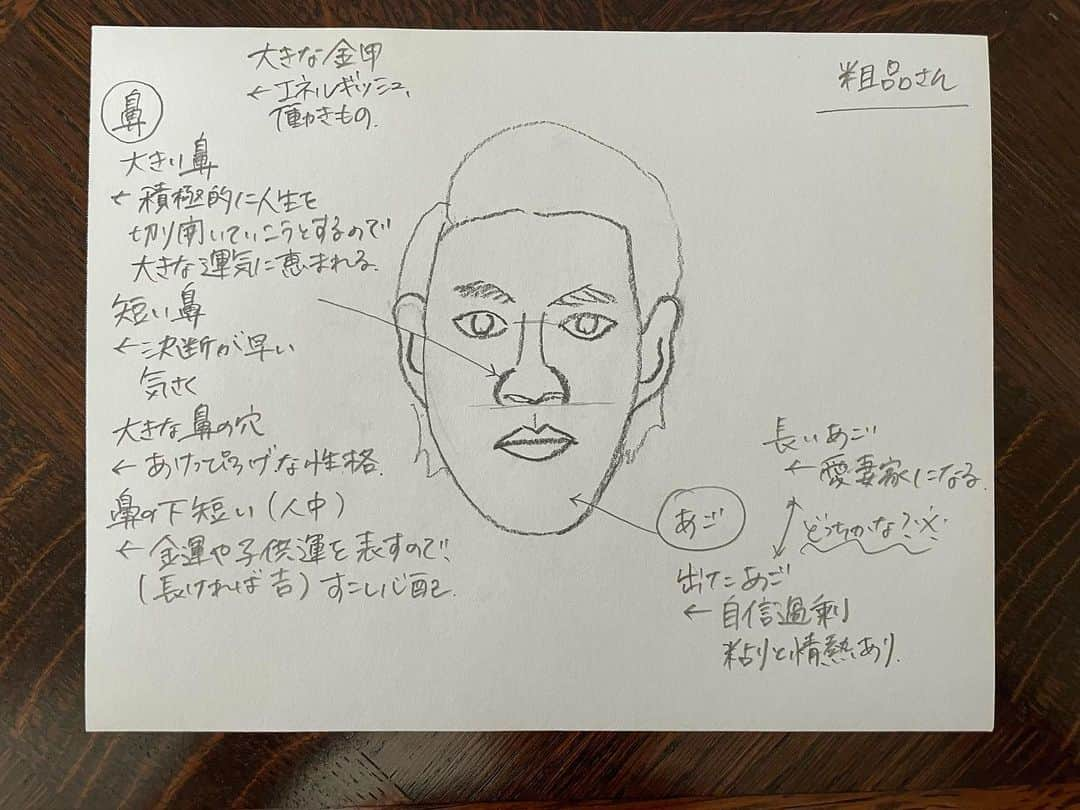 粗品さん
大きな金甲
←エネルギッシュ、
働きもの.
鼻
大きい鼻
←積極的に人生を
切り開いていこうとするので
大きな運気に恵まれる.
短い鼻
←決断が早い
気さく
大きな鼻の穴
←あけっぴろげな性格.
鼻の下短い(人中)
←金運や子供運を表すので
(長ければ吉)すこし心配.
あご
長いあご
←愛妻家になる.
どっちかな?
出たあご
←自信過剰
粘りと情熱あり.